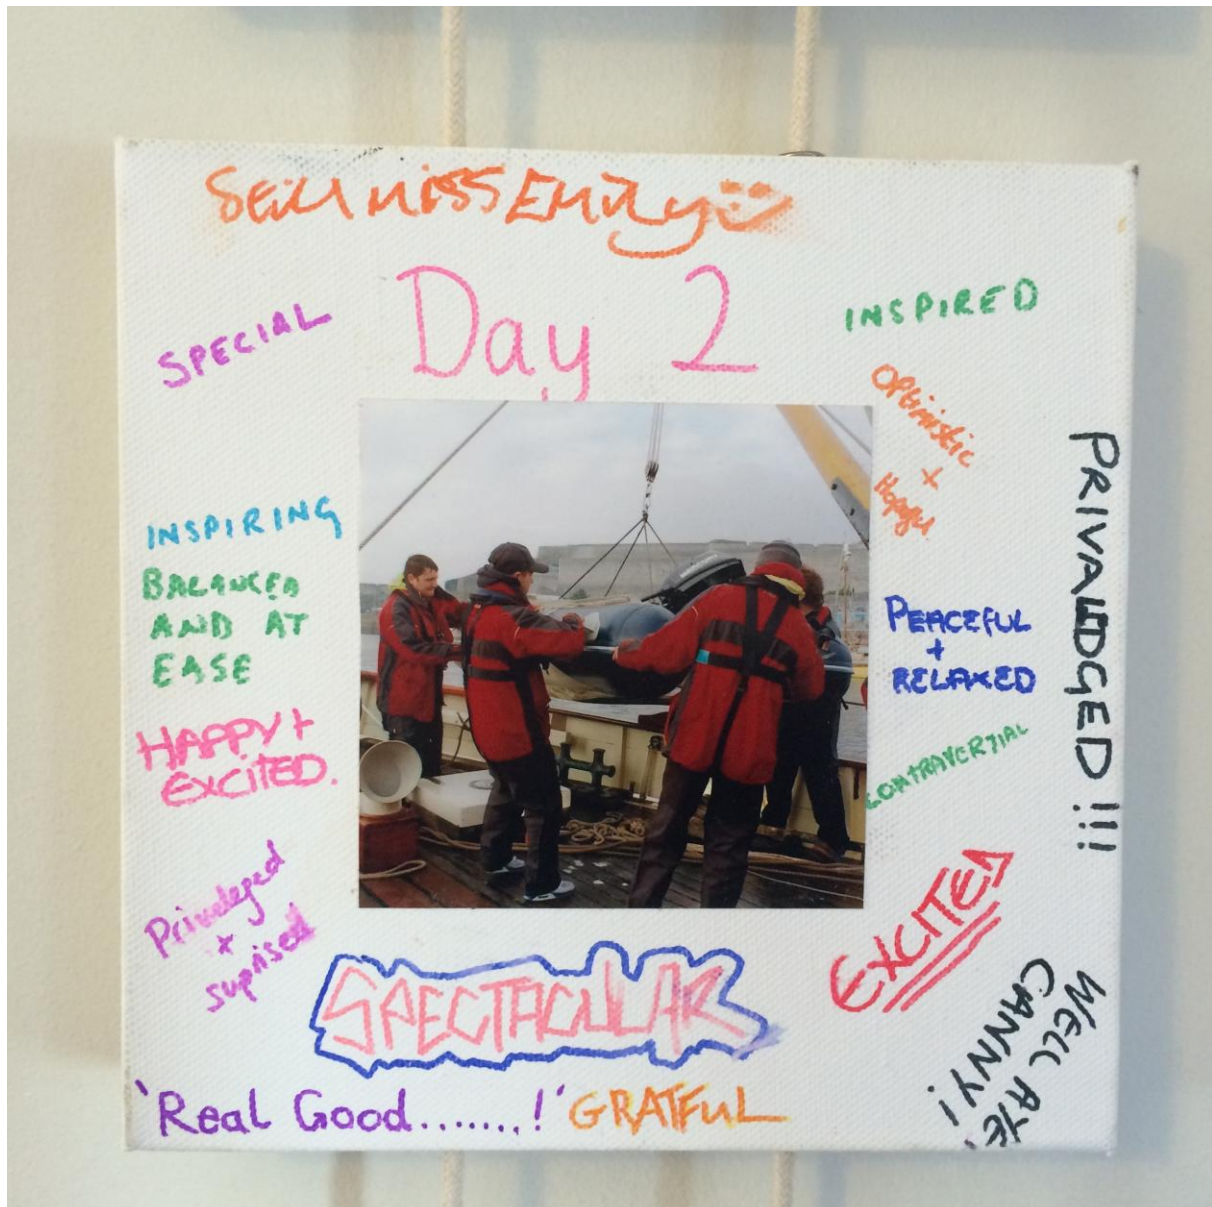 Still miss Emily
Day 2
SPECIAL
INSPIRED
OPtimistic
+
Hopeful
PRIVALEDGED !!!
INSPIRING
BALANCED
AND AT
EASE
PEACEFUL
+
RELAXED
HAPPY +
EXCITED.
CONTRAVERTIAL
Priveleged
+
suprised
EXCITED
SPECTACULAR
WELL AYE,
CANNY!
'Real Good.......!'
GRATFUL